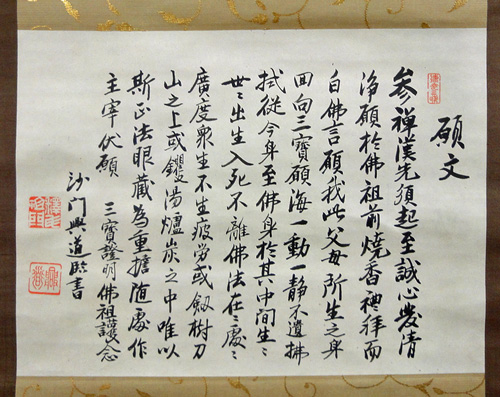 願文
参禅漢先須起至誠心發清
淨願於佛祖前燒香禮拜而
白佛言願我此父母所生之身
回向三寶願海一動一静不違拂
拭從今身至佛身於其中間生〻
世〻出生入死不離佛法在處〻
廣度衆生不生疲労或劔樹刀
山之上或钁湯爐炭之中唯以
斯正法眼藏為重擔随處作
主宰伏願　三寶證明佛祖護念
沙門興道臨書